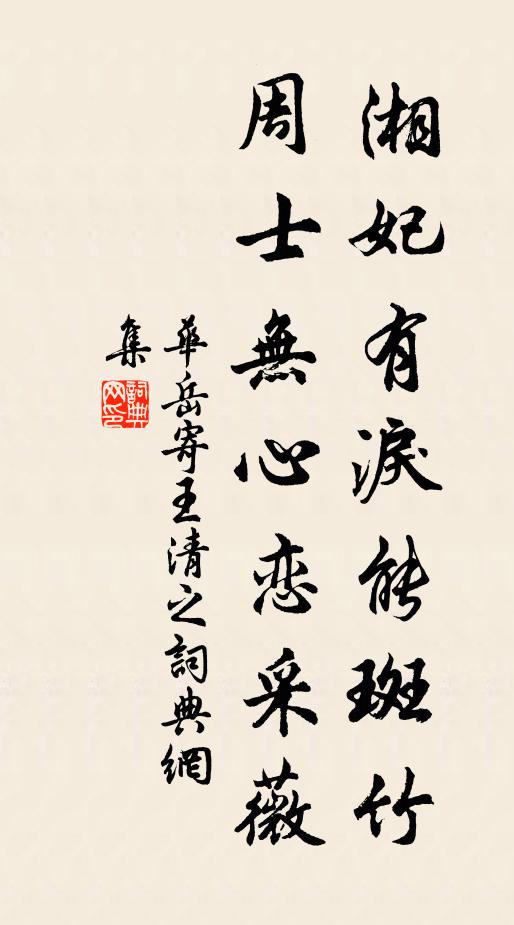 湘妃有淚能斑竹
周士無心恋采薇
華岳寄王清之詞典網
集
詞典網印